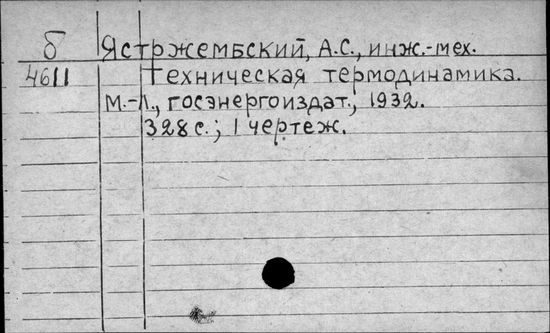 б Ястржембский, А.С., инж.-мех.
4611 Техническая термодинамика.
М.-Л., госэнергоиздат., 1932.
328 с.; 1 чертеж.